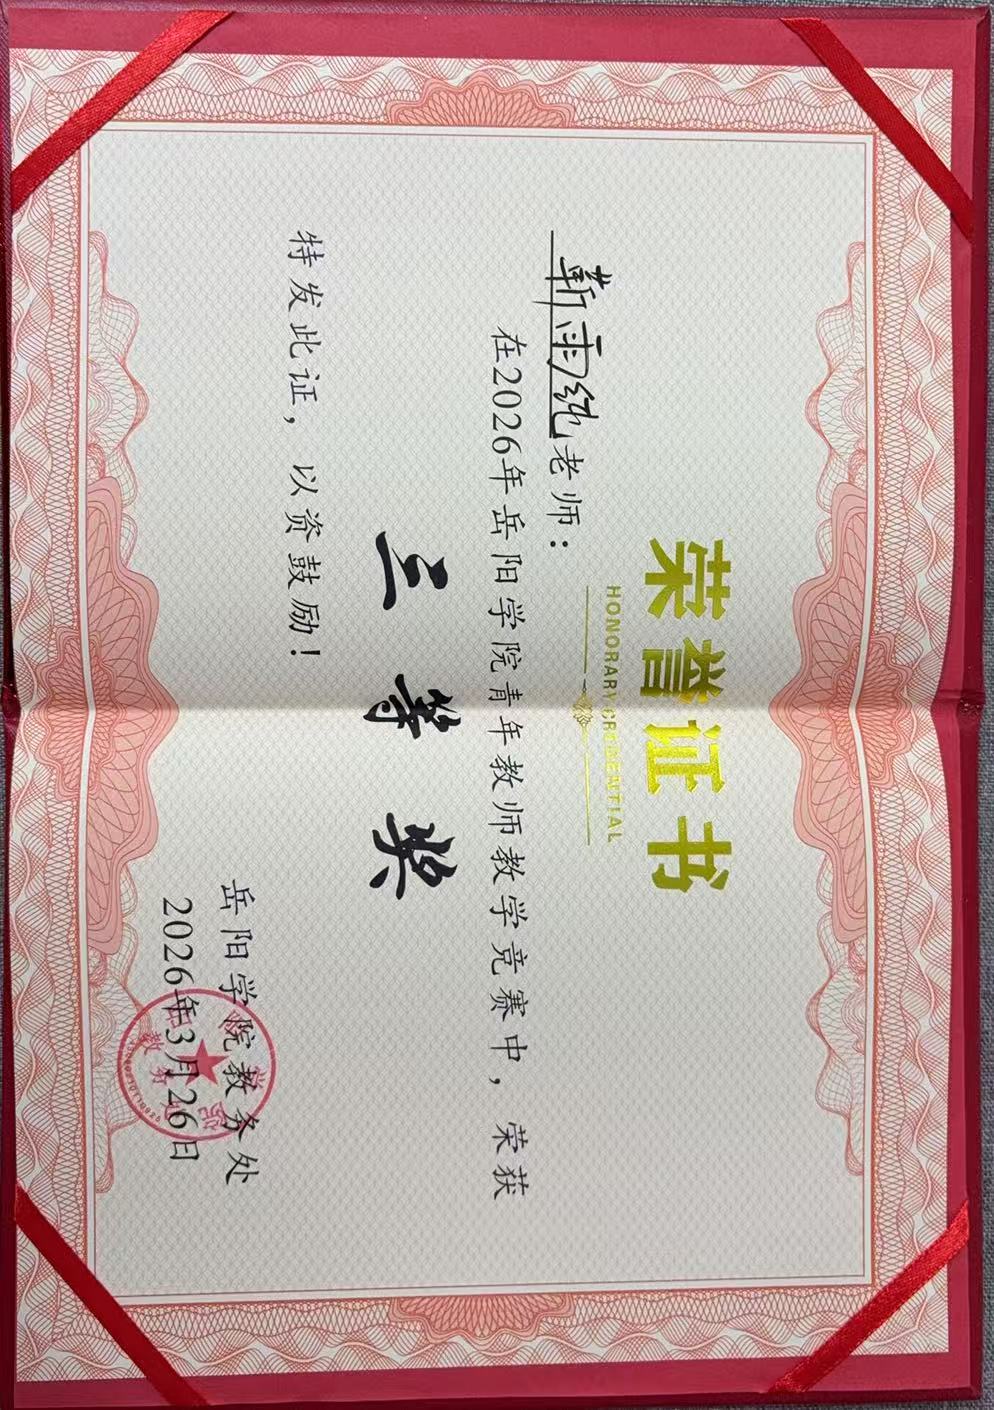 荣誉证书
HONORARY CREDENTIAL
靳雨纯老师：
在2026年岳阳学院青年教师教学竞赛中，荣获
三等奖
特发此证，以资鼓励！
岳阳学院教务处
2026年3月26日